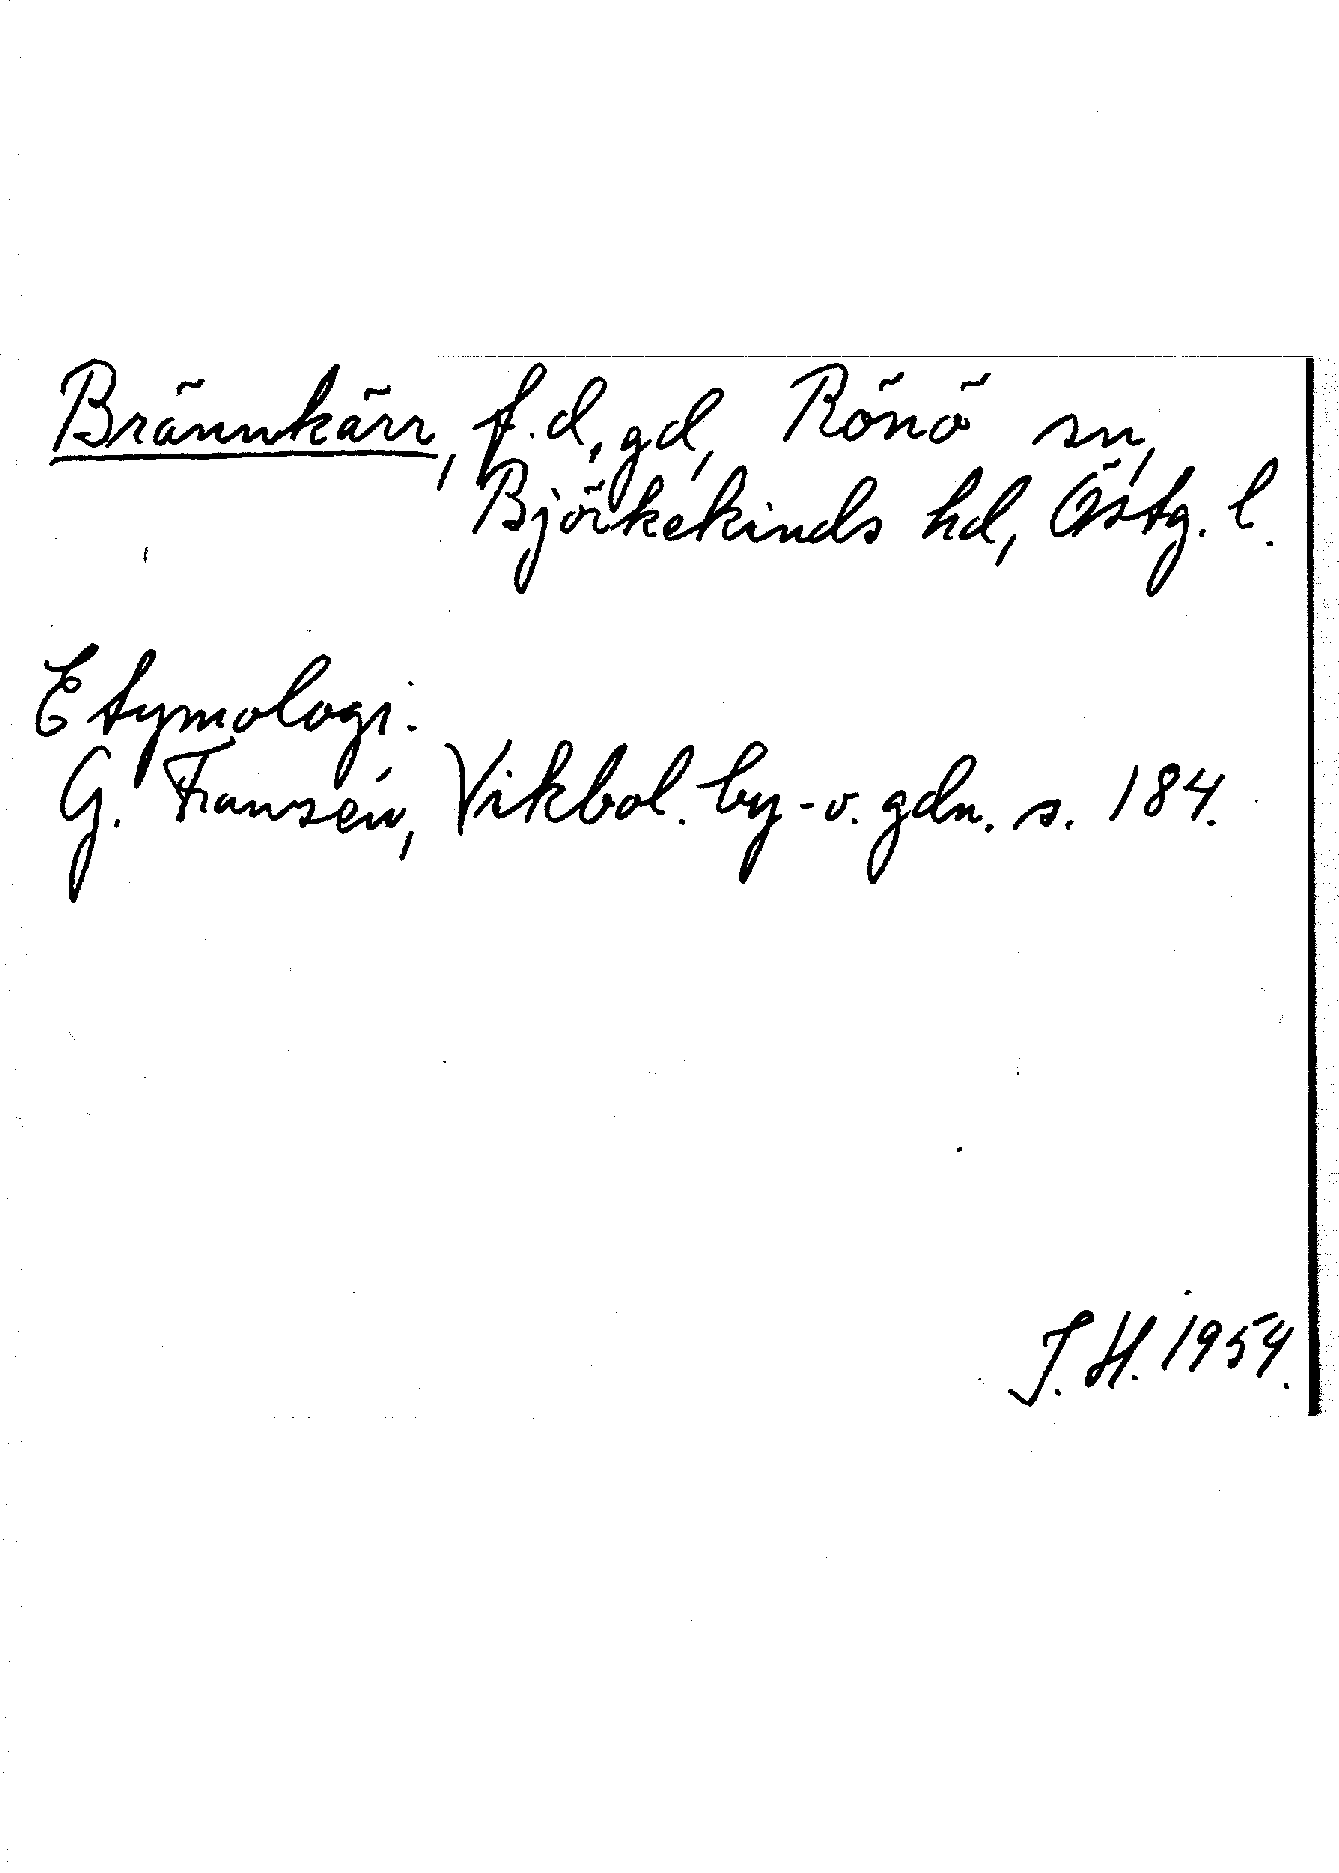 Brännkärr, f.d. gd, Rönö sn,
Björkekinds hd, Östg. l.
Etymologi.
G. Franzén, Vikbol. by- o. gdn. s. 184.
J. H. 1954.